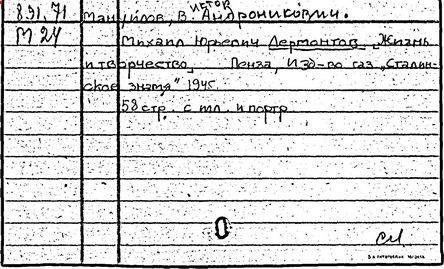 891,71 Мануйлов, Виктор Андроникович.
М 24 Михаил Юрьевич Лермонтов „Жизнь
и творчество„ Пенза, Изд-во газ „Сталин-
ское знамя" 1945.
58 стр. с ил. и портр
0
см